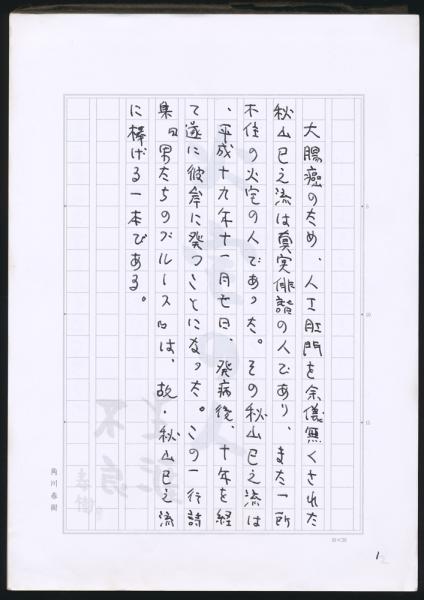 大腸癌のため、人工肛門を余儀無くされた
秋山巳之流は真実俳諧の人であり、また一所
不住の火宅の人であった。その秋山巳之流は
、平成十九年十一月七日、発病後、十年を経
て遂に彼岸に発つことになった。この一行詩
集『男たちのブルース』は、故・秋山巳之流
に捧げる一本である。
角川春樹
20×20
5
10
15
1